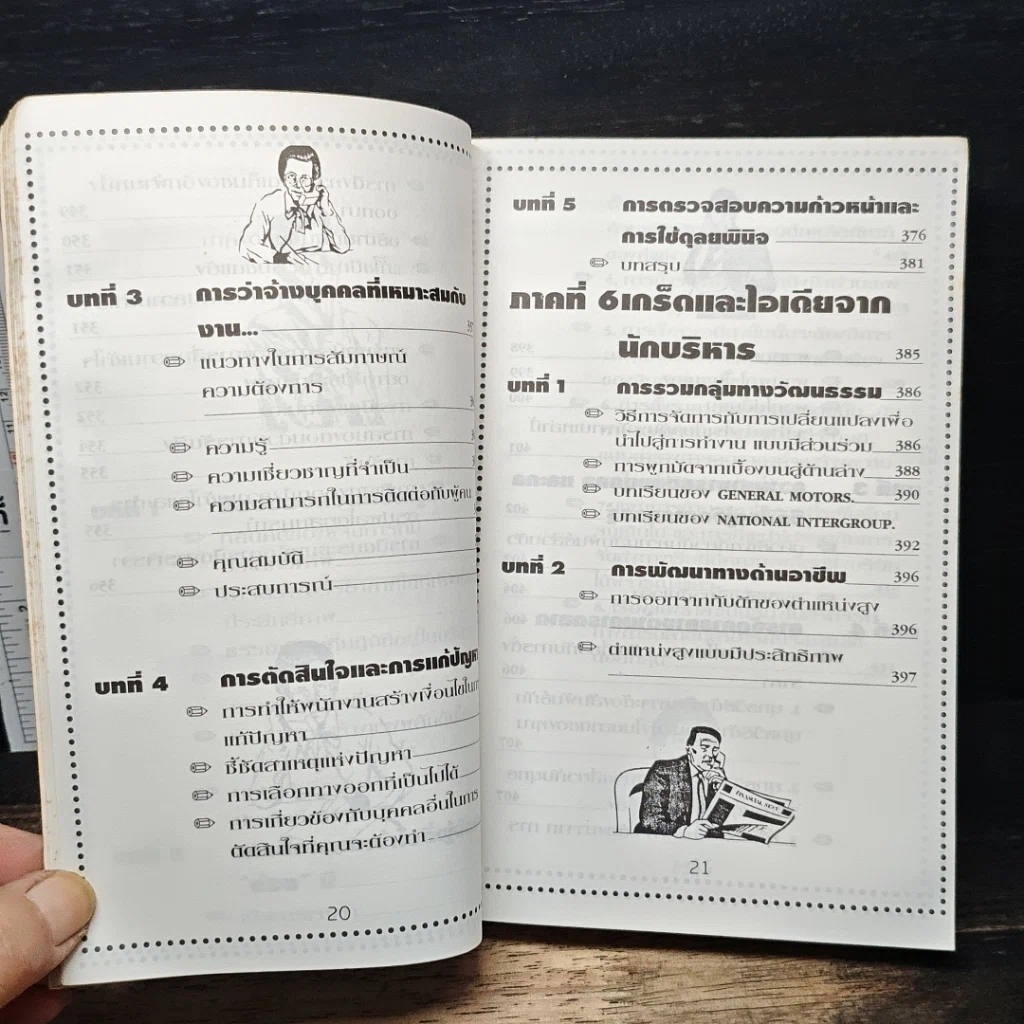 บทที่ 3 การว่าจ้างบุคคลที่เหมาะสมกับ
งาน...
แนวทางในการสัมภาษณ์
ความต้องการ
ความรู้
ความเชี่ยวชาญที่จำเป็น
ความสามารถในการติดต่อกับผู้คน
คุณสมบัติ
ประสบการณ์
บทที่ 4 การตัดสินใจและการแก้ปัญหา
การทำให้พนักงานสร้างเงื่อนไขในการ
แก้ปัญหา
ชี้ชัดสาเหตุแห่งปัญหา
การเลือกทางออกที่เป็นไปได้
การเกี่ยวข้องกับบุคคลอื่นในการ
ตัดสินใจที่คุณจะต้องทำ
20
บทที่ 5 การตรวจสอบความก้าวหน้าและ
การใช้ดุลยพินิจ 376
บทสรุป 381
ภาคที่ 6เกร็ดและไอเดียจาก
นักบริหาร 385
บทที่ 1 การรวมกลุ่มทางวัฒนธรรม 386
วิธีการจัดการกับการเปลี่ยนแปลงเพื่อ
นำไปสู่การทำงาน แบบมีส่วนร่วม 386
การผูกมัดจากเบื้องบนสู่ด้านล่าง 388
บทเรียนของ GENERAL MOTORS. 390
บทเรียนของ NATIONAL INTERGROUP.
392
บทที่ 2 การพัฒนาทางด้านอาชีพ 396
การออกจากกับดักของตำแหน่งสูง
396
ตำแหน่งสูงแบบมีประสิทธิภาพ
397
FINANCIAL NEWS
21